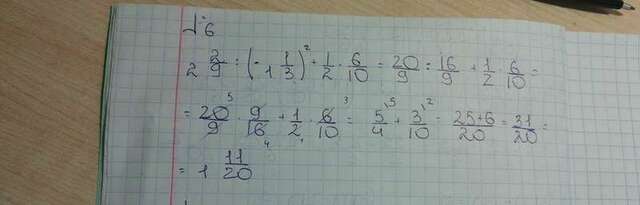 №6
2 2/9 : (-1 1/3)² + 1/2 · 6/10 = 20/9 : 16/9 + 1/2 · 6/10 =
= 20/9 · 9/16 + 1/2 · 6/10 = 5/4 + 3/10 = 25+6/20 = 31/20 =
= 1 11/20